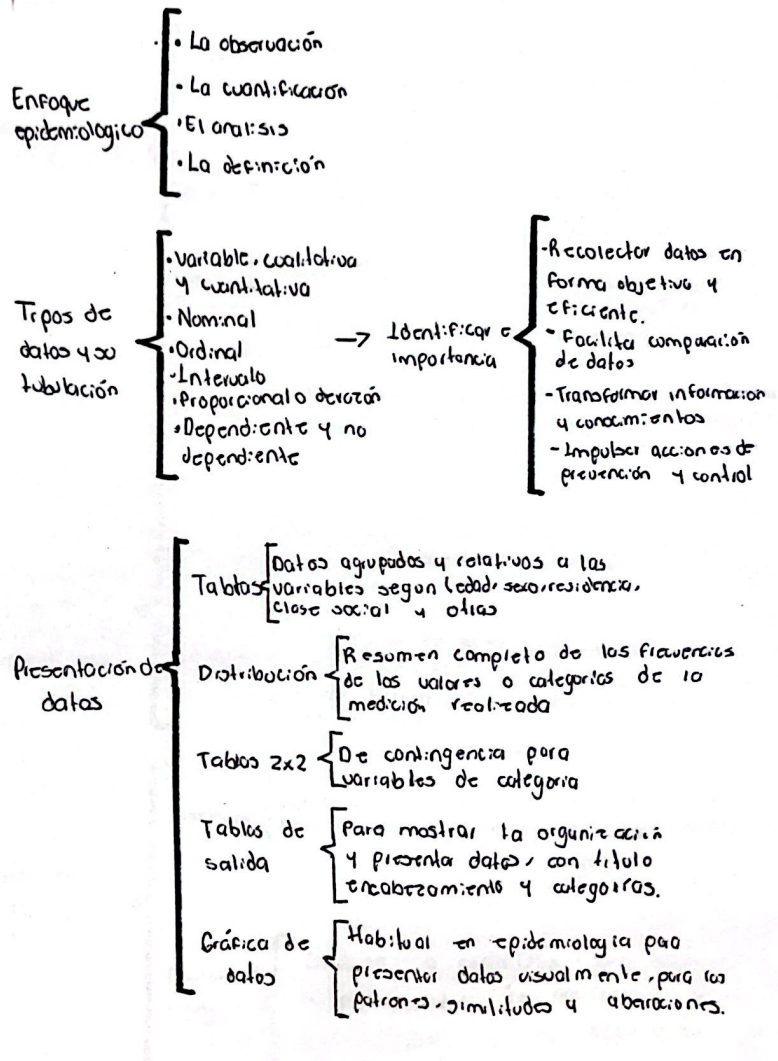 Enfoque
epidemiologico
• La observación
• La cuantificación
• El analisis
• La definición
Tipos de
datos y su
tubulación
• Variable, cualitativa
y cuantitativa
• Nominal
• Ordinal
• Intervalo
• Proporcional o de razón
• Dependiente y no
dependiente
→ Identificar e
importancia
- Recolectar datos en
forma objetiva y
eficiente.
- Facilita comparación
de datos
- Transformar información
y conocimientos
- Impulsar acciones de
prevención y control
Presentación de
datos
Tablas
Datos agrupados y relativos a las
variables segun (edad, sexo, residencia,
clase social y otras
Distribución
Resumen completo de las frecuencias
de los valores o categorias de la
medición realizada
Tablas 2x2
De contingencia para
variables de categoria
Tablas de
salida
Para mostrar la organización
y presentar datos, con titulo
encabezamiento y categorías.
Gráfica de
datos
Habitual en epidemiologia para
presentar datos visualmente, para los
patrones, similitudes y aberaciones.